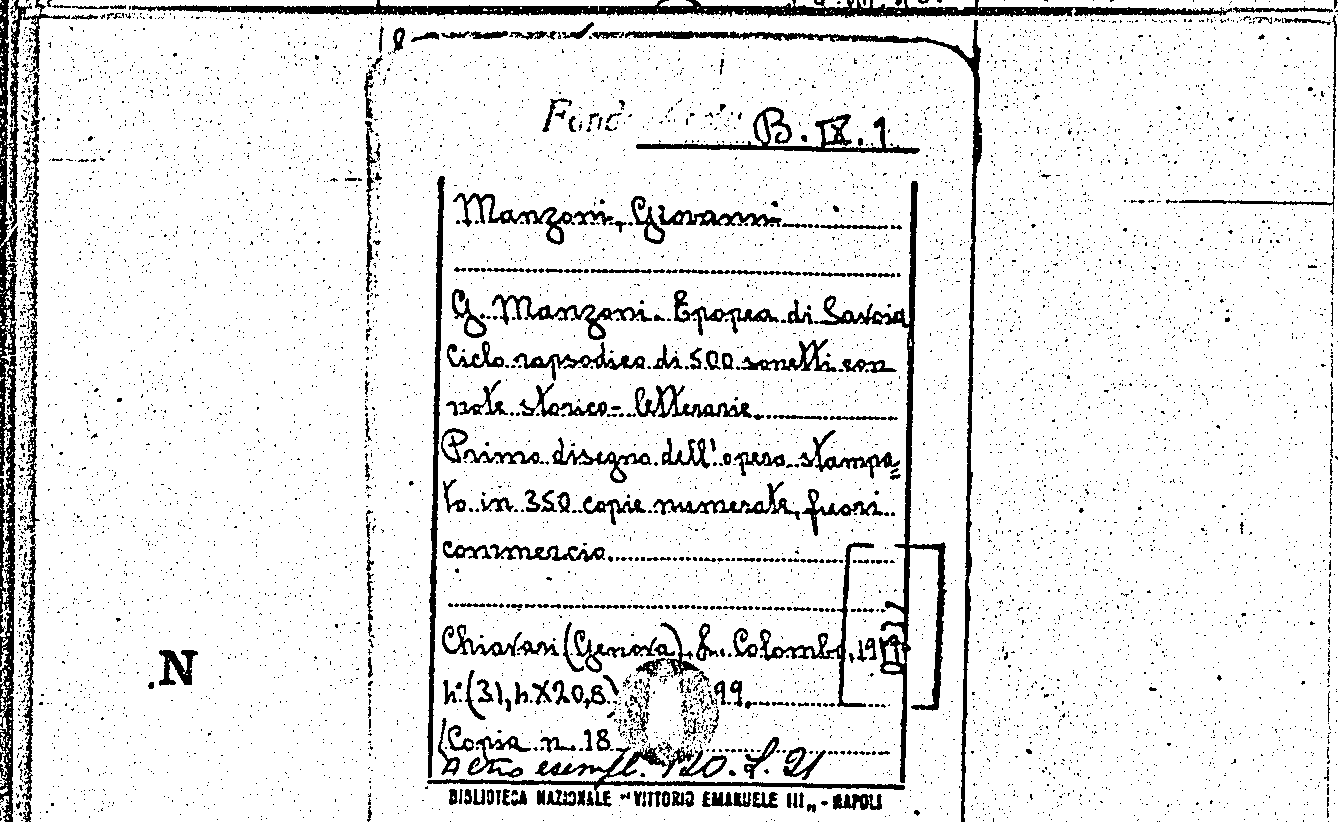 Fond B. IX. 1
Manzoni, Giovanni
G. Manzoni. Epopea di Savoia
Ciclo rapsodico di 500 sonetti con
note storico-letterarie
Primo disegno dell'opera stampa=
to in 350 copie numerate, fuori
commercio
Chiavari (Genova), L. Colombo, 19
4° (31,4X20,8) 99.
(Copia n. 18
Altro esempl. 120. I. 21
N
BIBLIOTECA NAZIONALE "VITTORIO EMANUELE III„ - NAPOLI